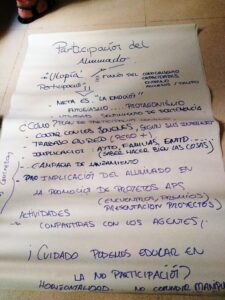 Participación del
Alumnado
¿Utopía
Participación?
META ES "LA EMOCIÓN"
ENTUSIASMO... PROTAGONISMO
SENTIMIENTO DE PERTENENCIA
CONTAR CON LOS JÓVENES, SEGÚN SUS INTERESES
TRABAJO EN RED
IMPLICACIÓN: AYTO, FAMILIAS,
(SABER HACER BIEN LAS COSAS)
CAMPAÑA DE LANZAMIENTO
IMPLICACIÓN DEL ALUMNADO EN
LA PROMOCIÓN DE PROYECTOS APS
(ENCUENTROS, PREMIOS,
PRESENTACIÓN PROYECTOS)
ACTIVIDADES
COMPARTIDAS CON LOS AGENTES
¡CUIDADO PODEMOS EDUCAR EN
LA NO PARTICIPACIÓN!
HORIZONTALIDAD. NO CONFUNDIR